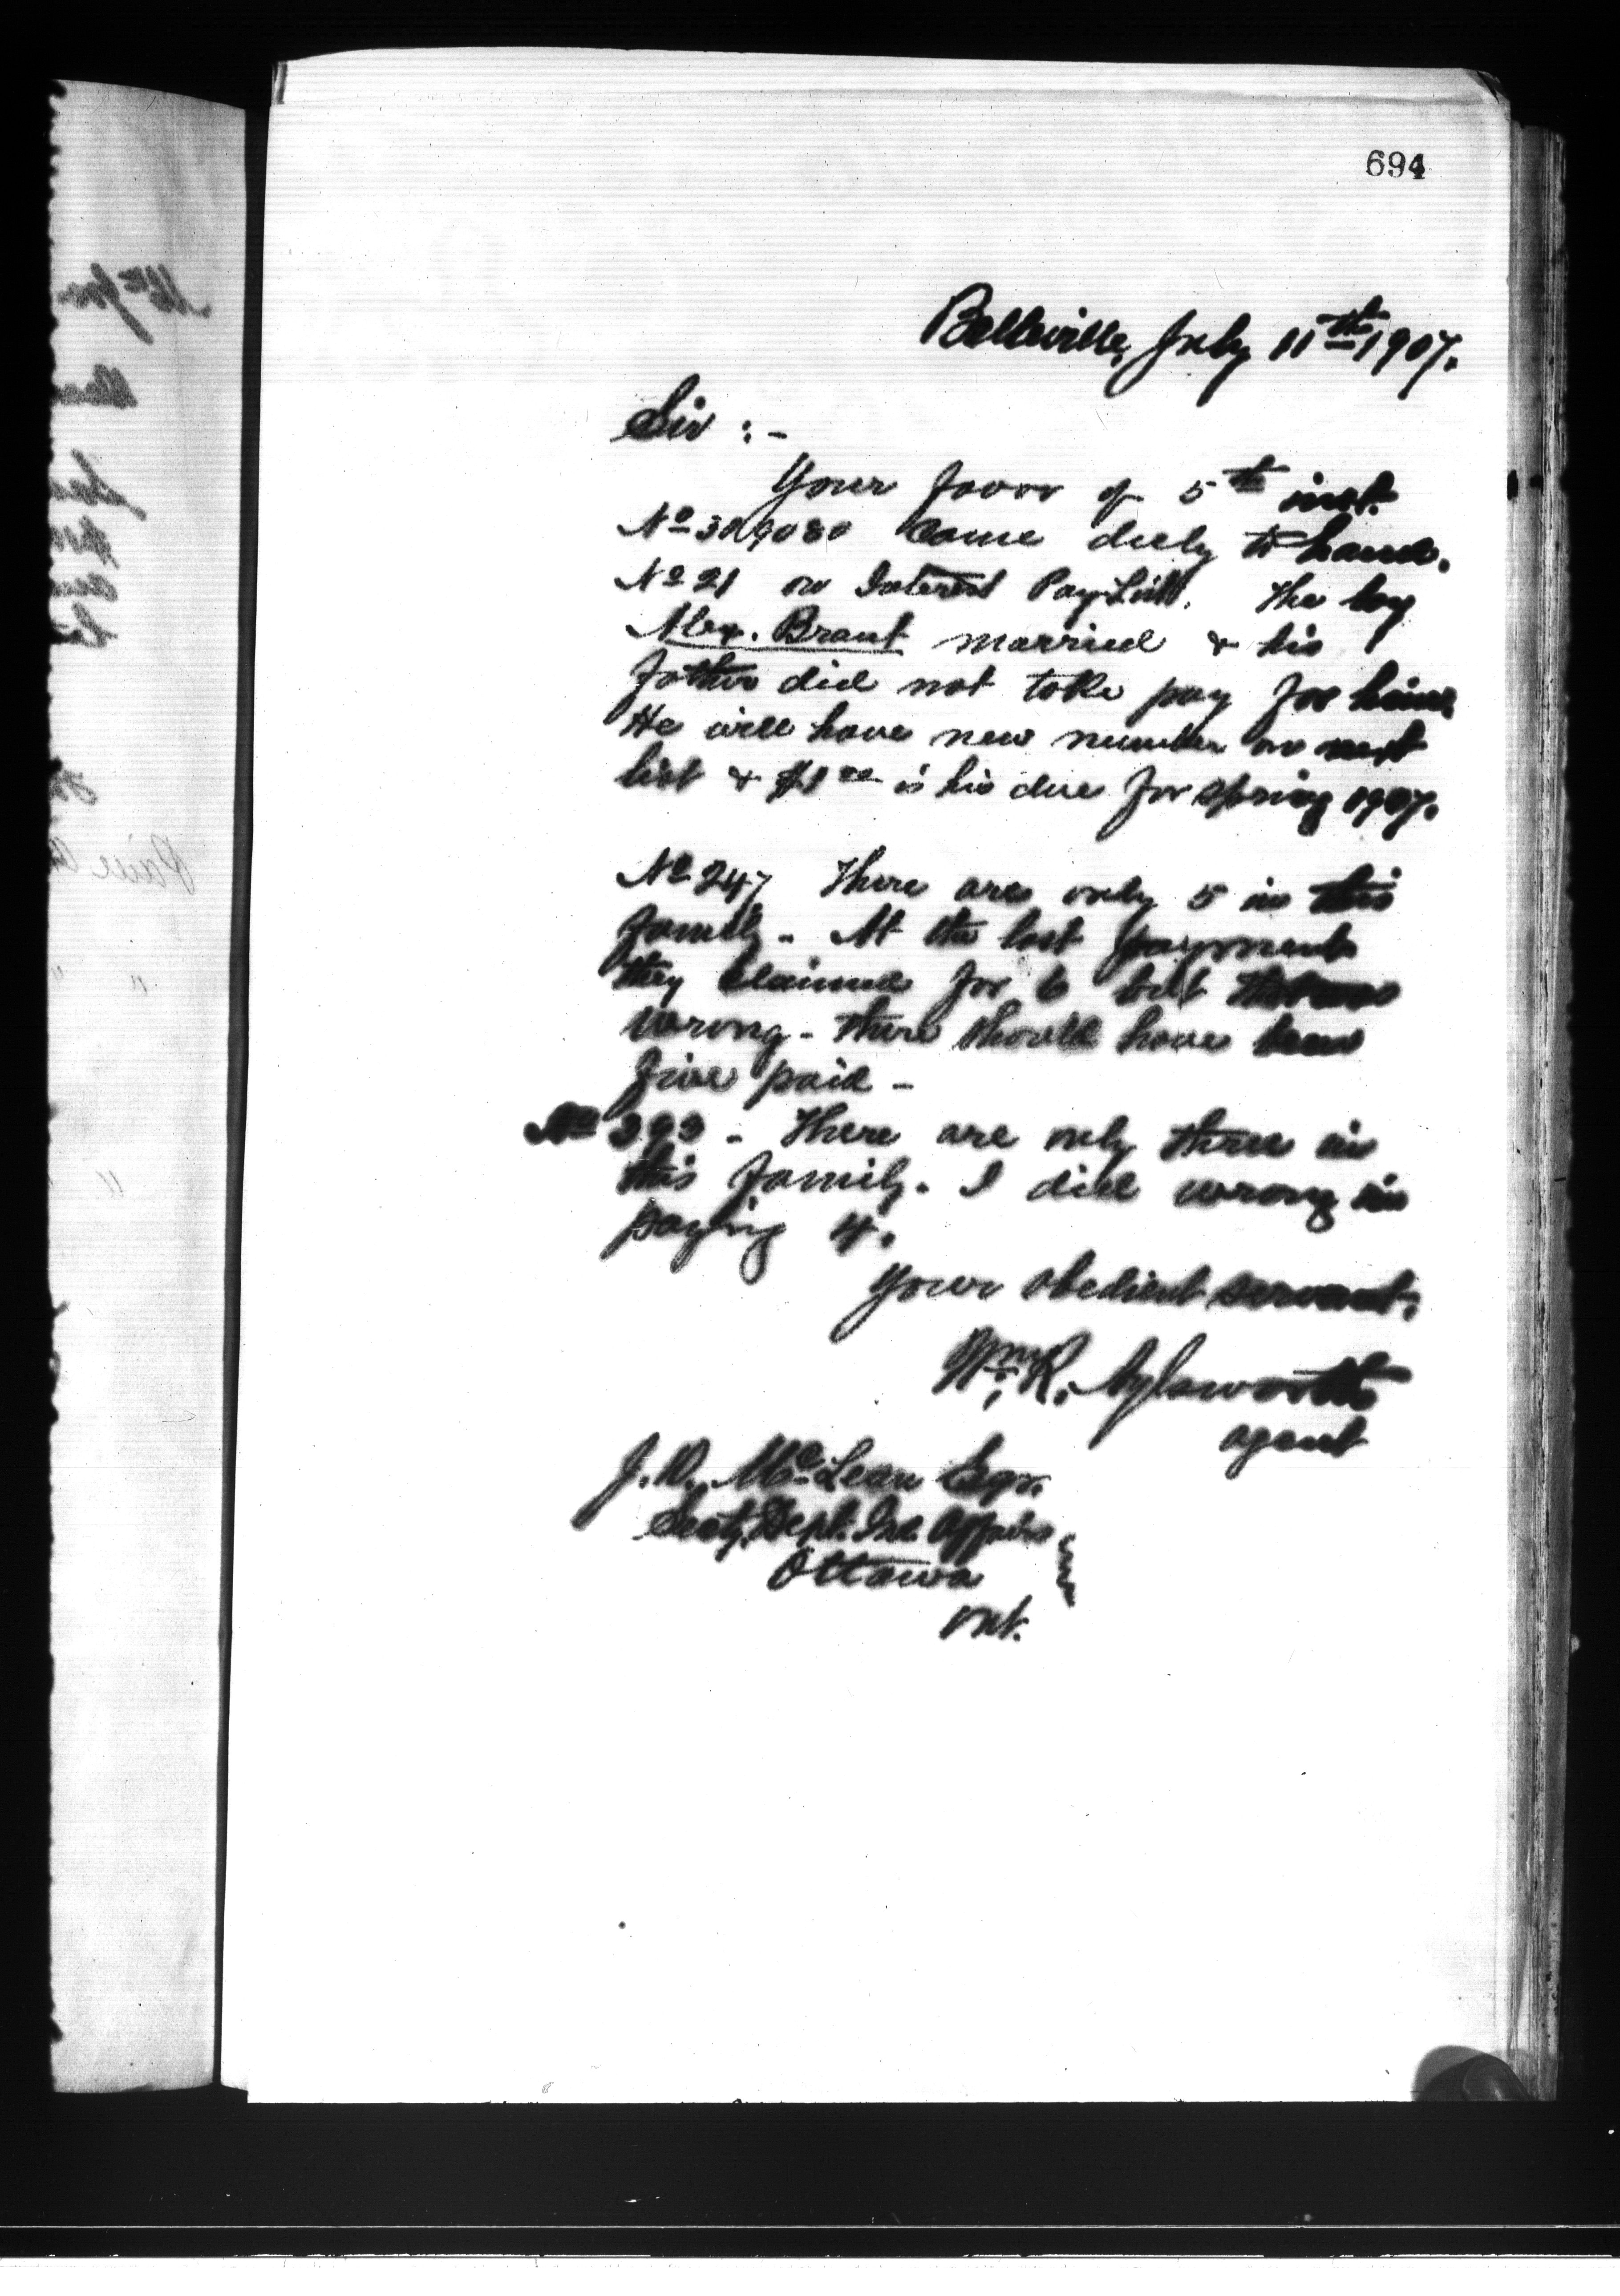 694
Belleville, July 11th 1907.
Sir :-
Your favor of 5th inst.
No 309080 came duly to hand.
No 21 on Interest Pay-List. The boy
Alex. Brant married & his
father did not take pay for him
He will have new number on next
list & $1 is his due for spring 1907.
No 247 There are only 5 in this
family - At the last payment
they claimed for 6 but that was
wrong - there should have been
five paid -
No 393 - There are only three in
this family. I did wrong in
paying 4.
Your obedient servant,
Wm. R. Aylsworth
agent
J. D. McLean Esqr.
Secty. Dept. Ind. Affairs
Ottawa
Ont.